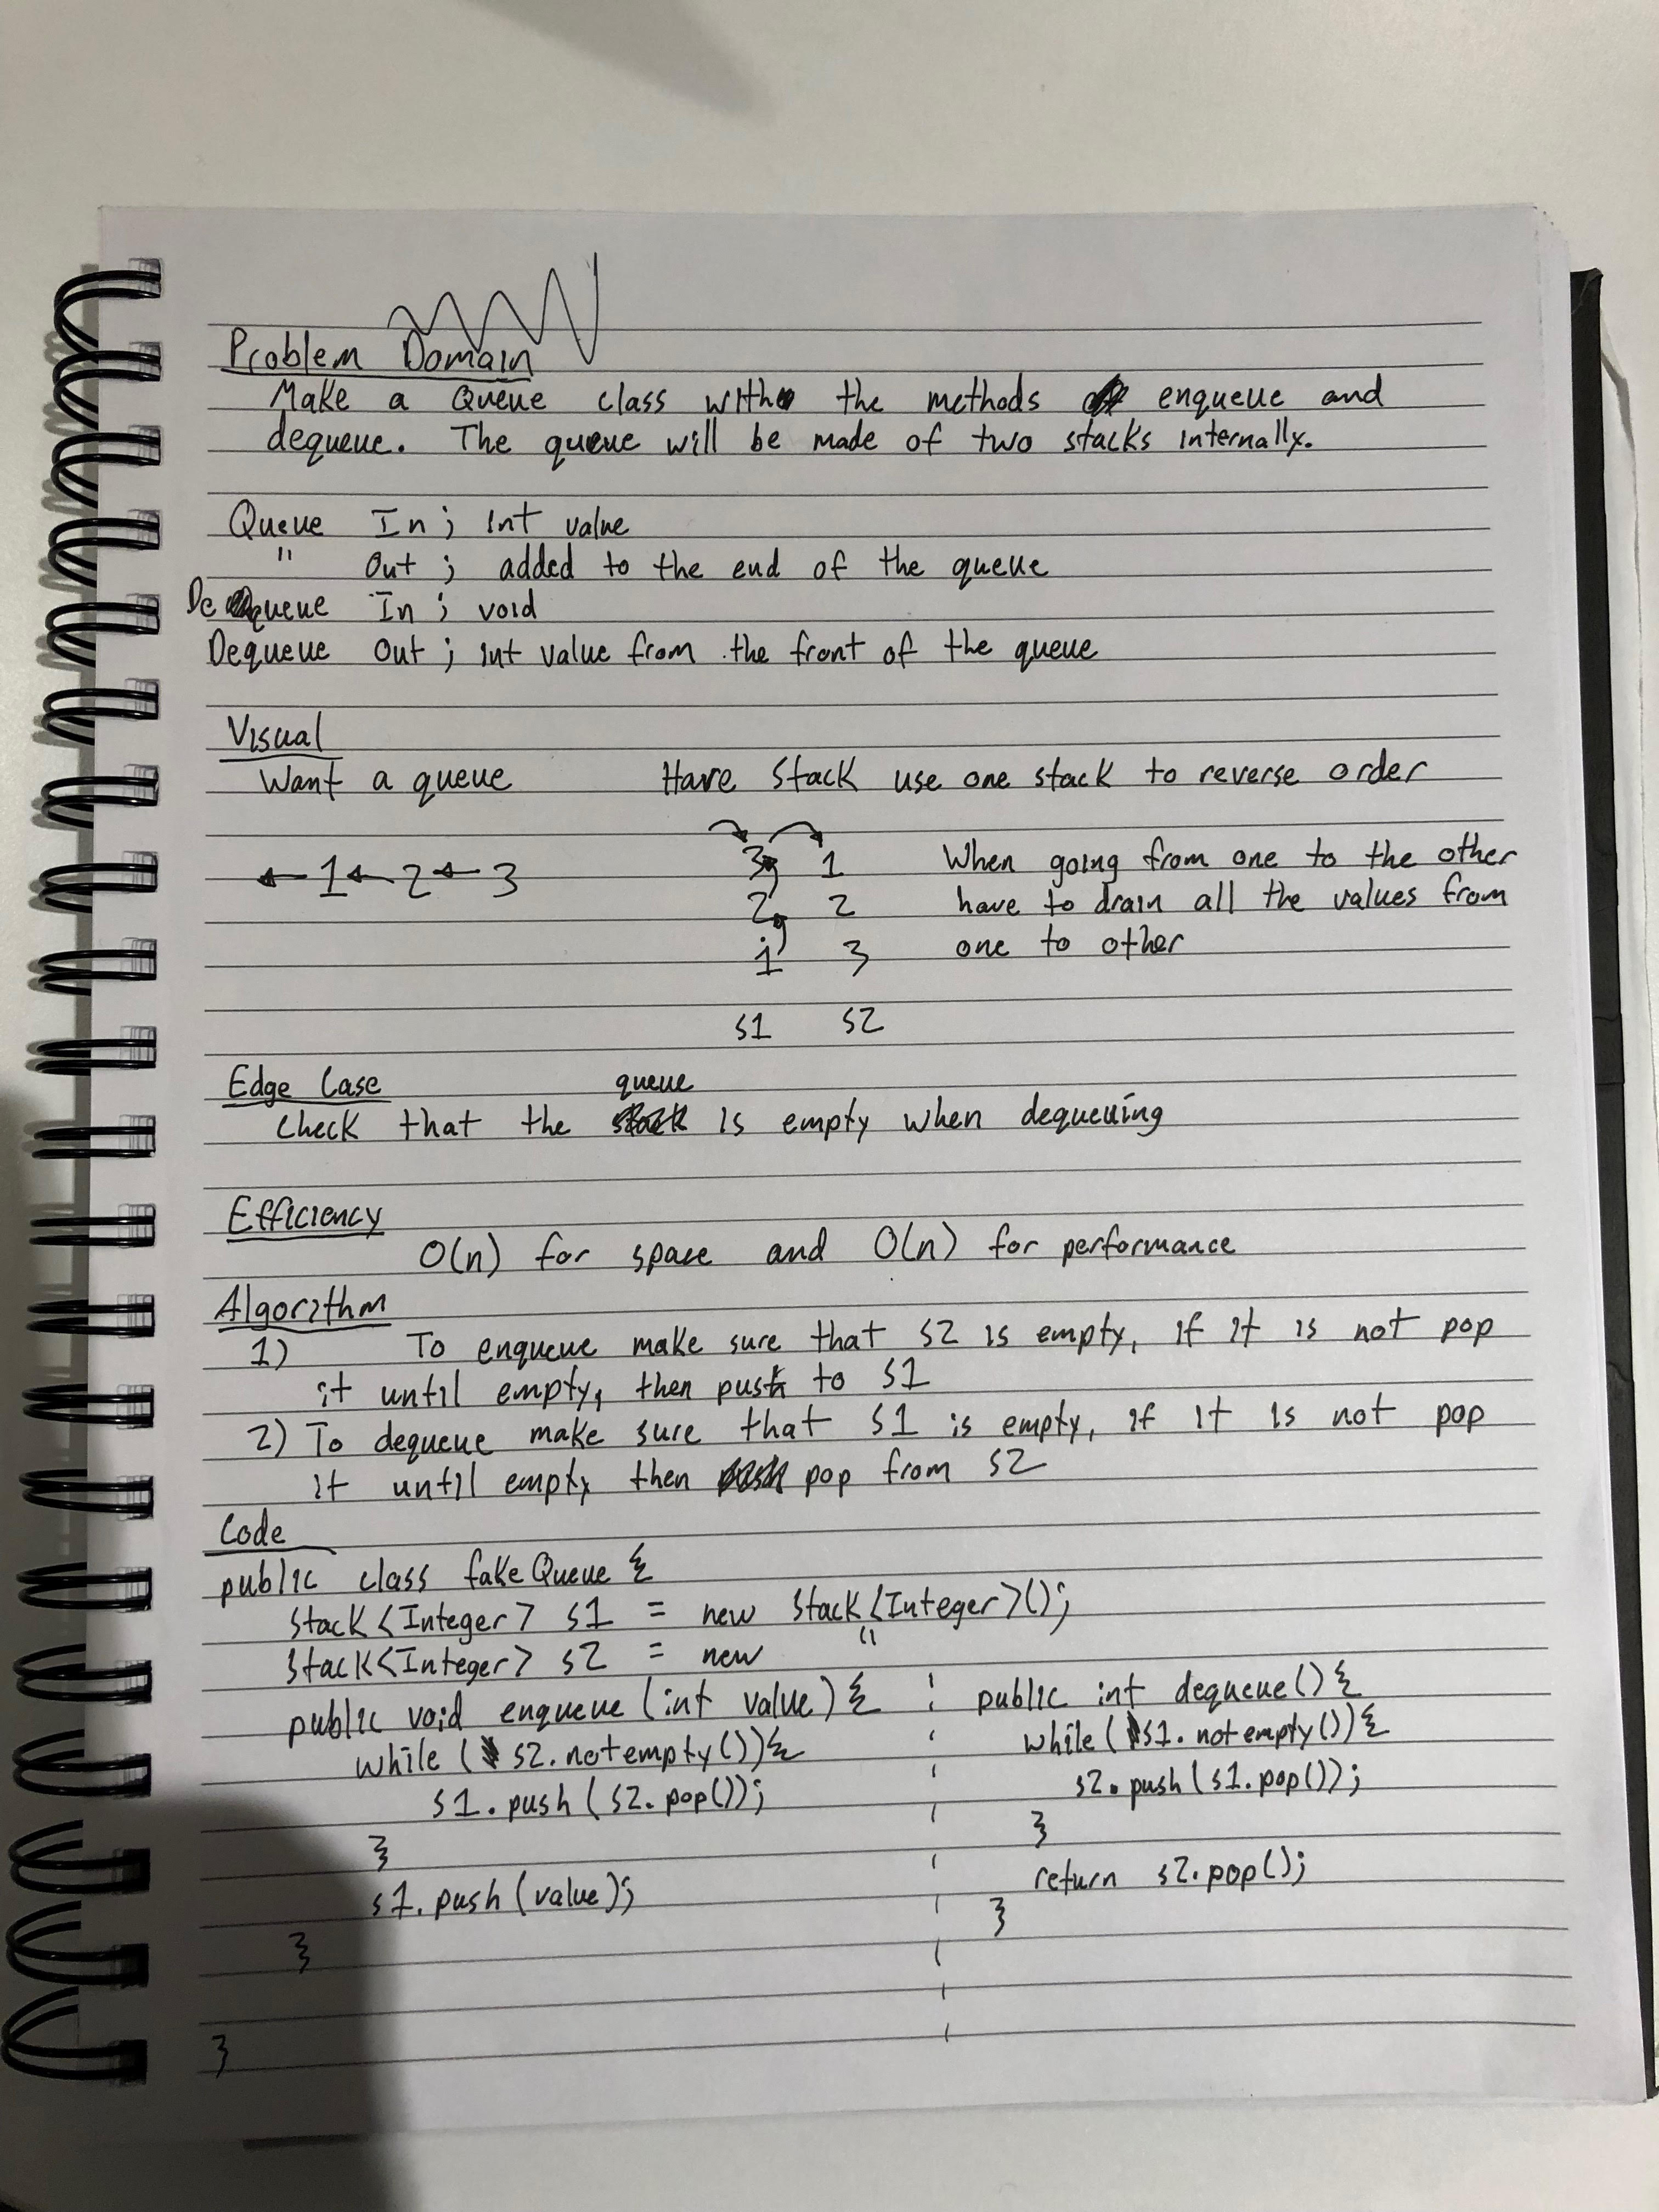 Problem Domain
Make a Queue class with the methods enqueue and
dequeue. The queue will be made of two stacks internally.
Queue In ; int value
" Out ; added to the end of the queue
Dequeue In ; void
Dequeue Out ; int value from the front of the queue
Visual
Want a queue Have Stack use one stack to reverse order
1 2 3 3 1 When going from one to the other
2 2 have to drain all the values from
1 3 one to other
S1 S2
Edge Case queue
Check that the stack is empty when dequeuing
Efficiency
O(n) for space and O(n) for performance
Algorithm
1) To enqueue make sure that S2 is empty, if it is not pop
it until empty, then push to S1
2) To dequeue make sure that S1 is empty, if it is not pop
it until empty then push pop from S2
Code
public class fakeQueue {
Stack<Integer> S1 = new Stack<Integer>();
Stack<Integer> S2 = new "
public void enqueue (int value) { public int dequeue() {
while ( S2.notempty()) { while ( S1.notempty()) {
S1.push (S2.pop()); S2.push (S1.pop());
} }
S1.push (value); return S2.pop();
} }
}